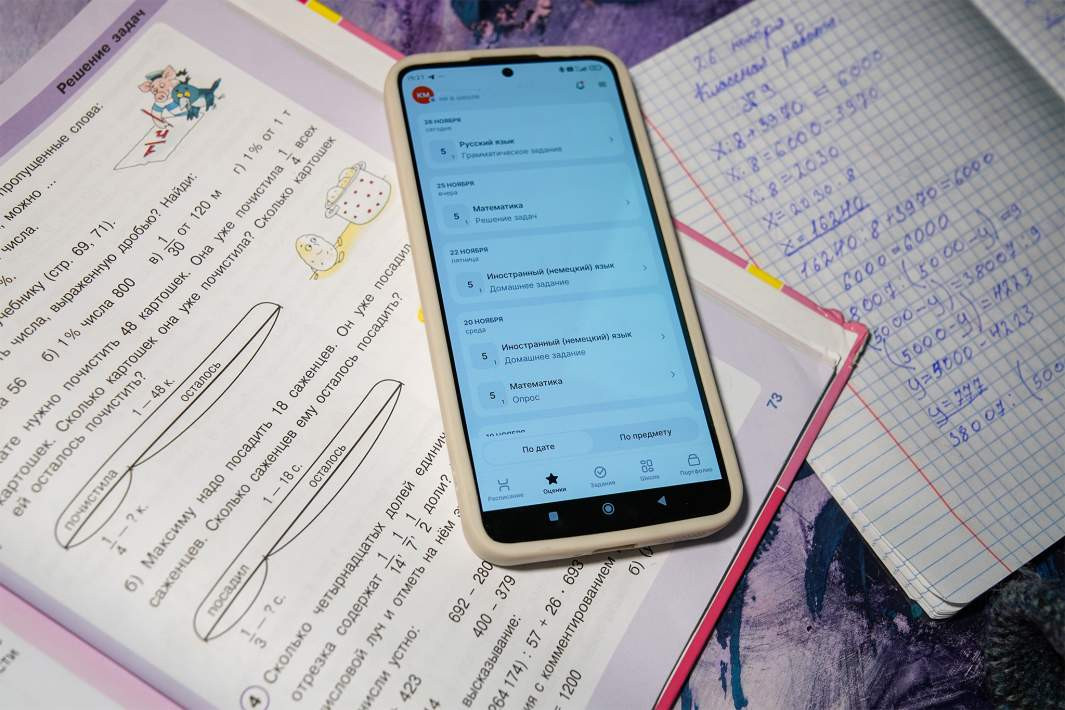 Решение задач
пропущенные слова:
, можно ...
числа.
%.
учебнику (стр. 69, 71).
ть числа, выраженную дробью? Найди:
а 56 б) 1% числа 800 в) 1/30 от 120 м г) 1% от 1 т
кате нужно почистить 48 картошек. Она уже почистила 1/4 всех
картошек. Сколько картошек она уже почистила? Сколько картошек
ей осталось почистить?
1 – 48 к.
почистила
осталось
1/4 – ? к.
б) Максиму надо посадить 18 саженцев. Он уже посадил
саженцев. Сколько саженцев ему осталось посадить?
1 – 18 с.
посадил
осталось
1/3 – ? с.
4 Сколько четырнадцатых долей единич
отрезка содержат 1/14, 1/7, 1/2 доли?
исловой луч и отметь на нём
числи устно:
423
692 – 280
400 – 379
высказывание:
264 174) : 57 + 26 · 693
я с комментированием
= 1200
б) (
73
сти
19:27
КМ
не в школе
26 НОЯБРЯ
сегодня
5 1
Русский язык
Грамматическое задание
25 НОЯБРЯ
вчера
5 1
Математика
Решение задач
22 НОЯБРЯ
пятница
5 1
Иностранный (немецкий) язык
Домашнее задание
20 НОЯБРЯ
среда
5 1
Иностранный (немецкий) язык
Домашнее задание
5 1
Математика
Опрос
19 НОЯБРЯ
По дате
По предмету
Расписание
Оценки
Задания
Школа
Портфолио
26 ноября
Классная работа
x:8+3970 = 6000
x:8=6000-3970
x:8=2030
x=2030·8
x=16240
16240:8+3970=6000
6000=6000
(5000-y)=9
(5000-y)=38007:9
(5000-y)=4223
y=5000-4223
y=777
38007:(500